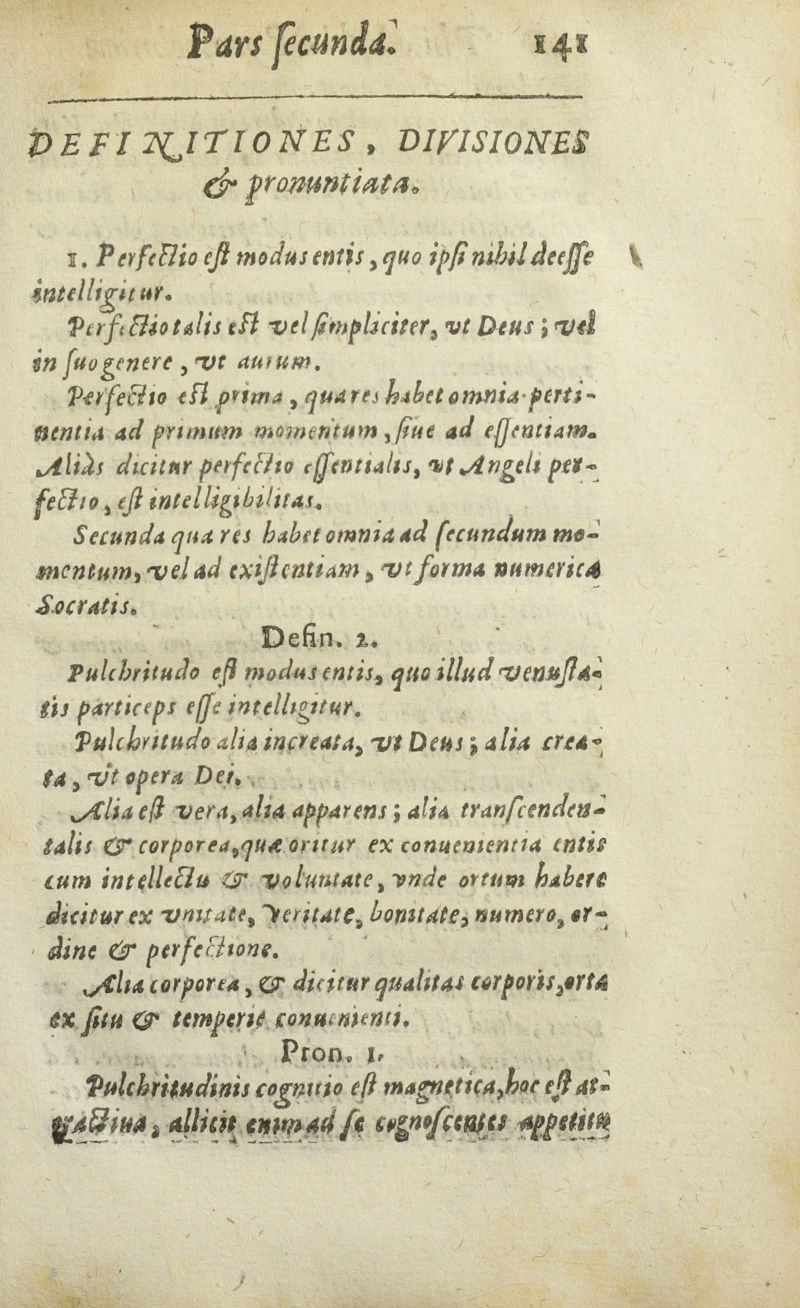 Pars ſecunda. 141
DEFINITIONES, DIVISIONES
& pronuntiata.
1. Perfectio eſt modus entis, quo ipſi nihil deeſſe
intelligitur.
Perfectio talis eſt vel ſimpliciter, vt Deus; vel
in ſuo genere, vt aurum.
Perfectio eſt prima, qua res habet omnia perti-
nentia ad primum momentum, ſiue ad eſſentiam.
Aliàs dicitur perfectio eſſentialis, vt Angeli per-
fectio, eſt intelligibilitas.
Secunda qua res habet omnia ad ſecundum mo-
mentum, vel ad exiſtentiam, vt forma numerica
Socratis.
Defin. 2.
Pulchritudo eſt modus entis, quo illud venuſta-
tis particeps eſſe intelligitur.
Pulchritudo alia increata, vt Deus; alia crea-
ta, vt opera Dei.
Alia eſt vera, alia apparens; alia tranſcenden-
talis & corporea, quæ oritur ex conuenientia entis
cum intellectu & voluntate, vnde ortum habere
dicitur ex vnitate, veritate, bonitate, numero, or-
dine & perfectione.
Alia corporea, & dicitur qualitas corporis, orta
ex ſitu & temperie conuenienti.
Pron. 1.
Pulchritudinis cognitio eſt magnetica, hoc eſt at-
tractiua, allicit enim ad ſe cognoſcentes appetitu